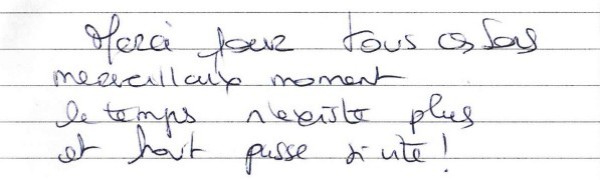 Merci pour tous ces
merveillaux moment
le temps n'existe plus
et passe si vite!